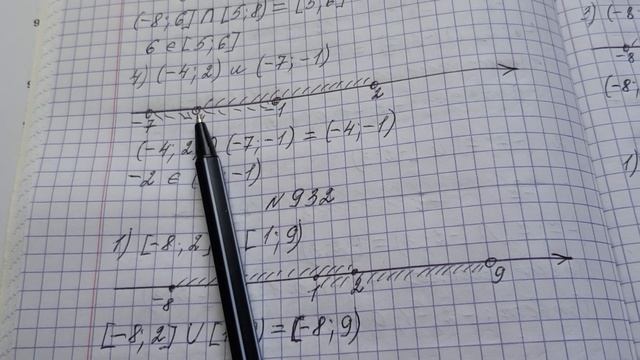 (-8; 6] ∩ [5; 8) = [5; 6]
6 ∈ [5; 6]
4) (-4; 2) и (-7; -1)
-7 -1 2
(-4; 2) ∩ (-7; -1) = (-4; -1)
-2 ∈ -1)
N 932
1) [-8; 2] [1; 9)
-8 1 2 9
[-8; 2] ∪ [ ) = [-8; 9)
3) (-8
-8
(-8;
1)